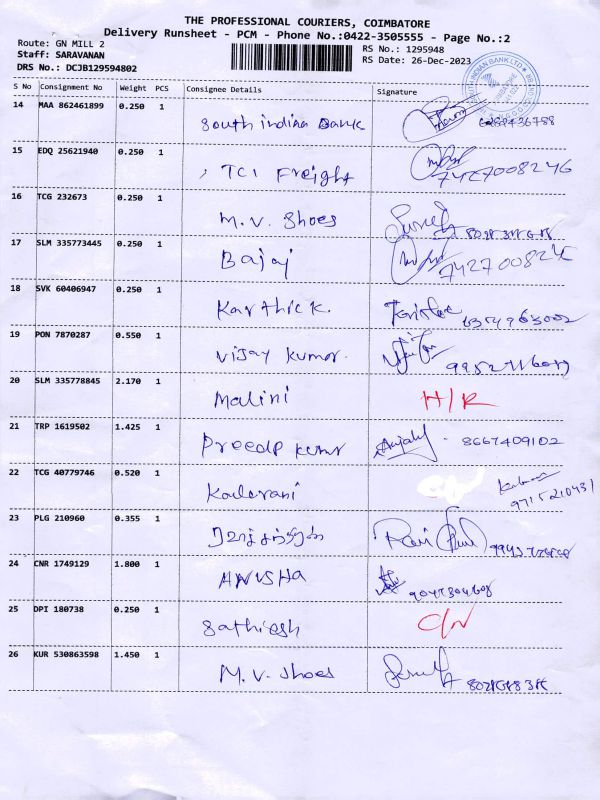 THE PROFESSIONAL COURIERS, COIMBATORE
Delivery Runsheet - PCM - Phone No.:0422-3505555 - Page No.:2
Route: GN MILL 2
Staff: SARAVANAN
DRS No.: DCJB129594802
RS No.: 1295948
RS Date: 26-Dec-2023
S No Consignment No Weight PCS Consignee Details Signature
14 MAA 862461899 0.250 1 South indian Bank
15 EDQ 25621940 0.250 1 TCI Freight 7427008246
16 TCG 232673 0.250 1 M.V. Shoes
17 SLM 335773445 0.250 1 Bajaj
18 SVK 60406947 0.250 1 Karthick.
19 PON 7870287 0.550 1 Vijay kumar.
20 SLM 335778845 2.170 1 Malini H/R
21 TRP 1619502 1.425 1 Preedp kumr Anjaly 8667409102
22 TCG 40779746 0.520 1 9715210431
23 PLG 210960 0.355 1 Ravi
24 CNR 1749129 1.800 1 ANUSHA 9047304608
25 DPI 180738 0.250 1 Sathiesh
26 KUR 530863598 1.450 1 M.V. Shoes